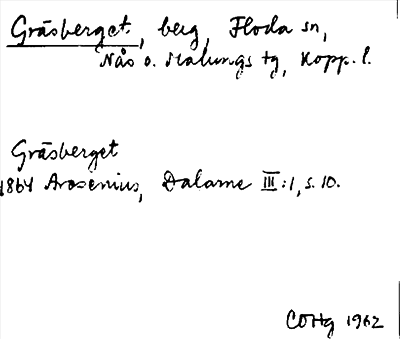 Gräsberget, berg, Floda sn,
Nås o. Malungs tg, Kopp. l.
Gräsberget
1864 Arosenius, Dalarne III:1, s. 10.
COHg 1962